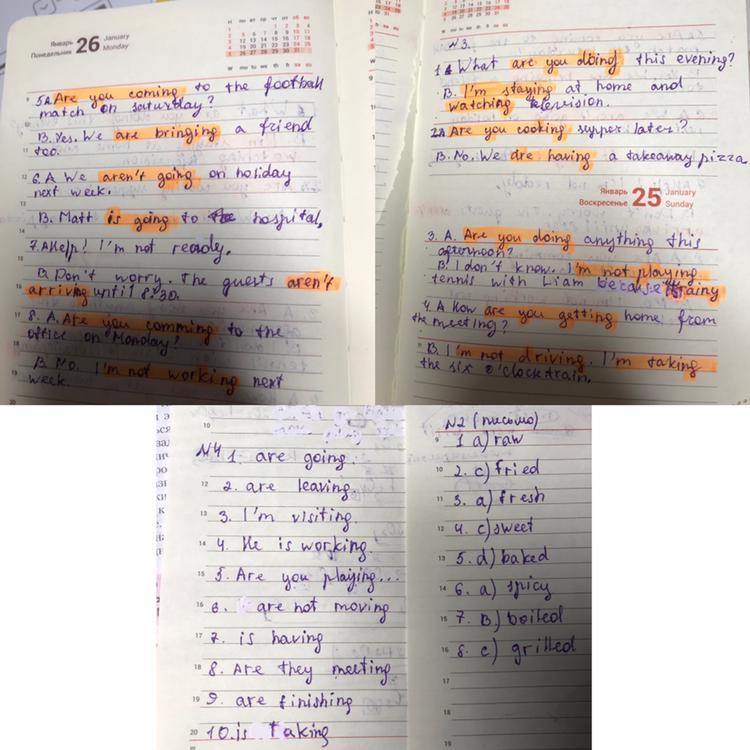 Январь 26 January
Понедельник Monday
5a. Are you coming to the football
match on saturday?
B. Yes. We are bringing a friend
too.
6. A We aren't going on holiday
next week.
B. Matt is going to hospital,
7. A Help! I'm not ready.
B. Don't worry. The guests aren't
arriving until 8.30.
8. A. Are you comming to the
office on Monday?
B. No. I'm not working next
week.
N3.
1 A What are you doing this evening?
B. I'm staying at home and
watching television.
2A Are you cooking supper later?
B. No. We are having a takeaway pizza
Январь 25 January
Воскресенье Sunday
3. A. Are you doing anything this
afternoon?
B. I don't know. I'm not playing
tennis with Liam because rainy
4. A How are you getting home from
the meeting?
B. I'm not driving. I'm taking
the six o'clock train.
N4 1. are going.
2. are leaving.
3. I'm visiting.
4. He is working.
5. Are you playing...
6. are not moving
7. is having
8. Are they meeting
9. are finishing
10. is taking
N2 (письмо)
1 a) raw
2. c) fried
3. a) fresh
4. c) sweet
5. d) baked
6. a) spicy
7. B) boiled
8. c) grilled